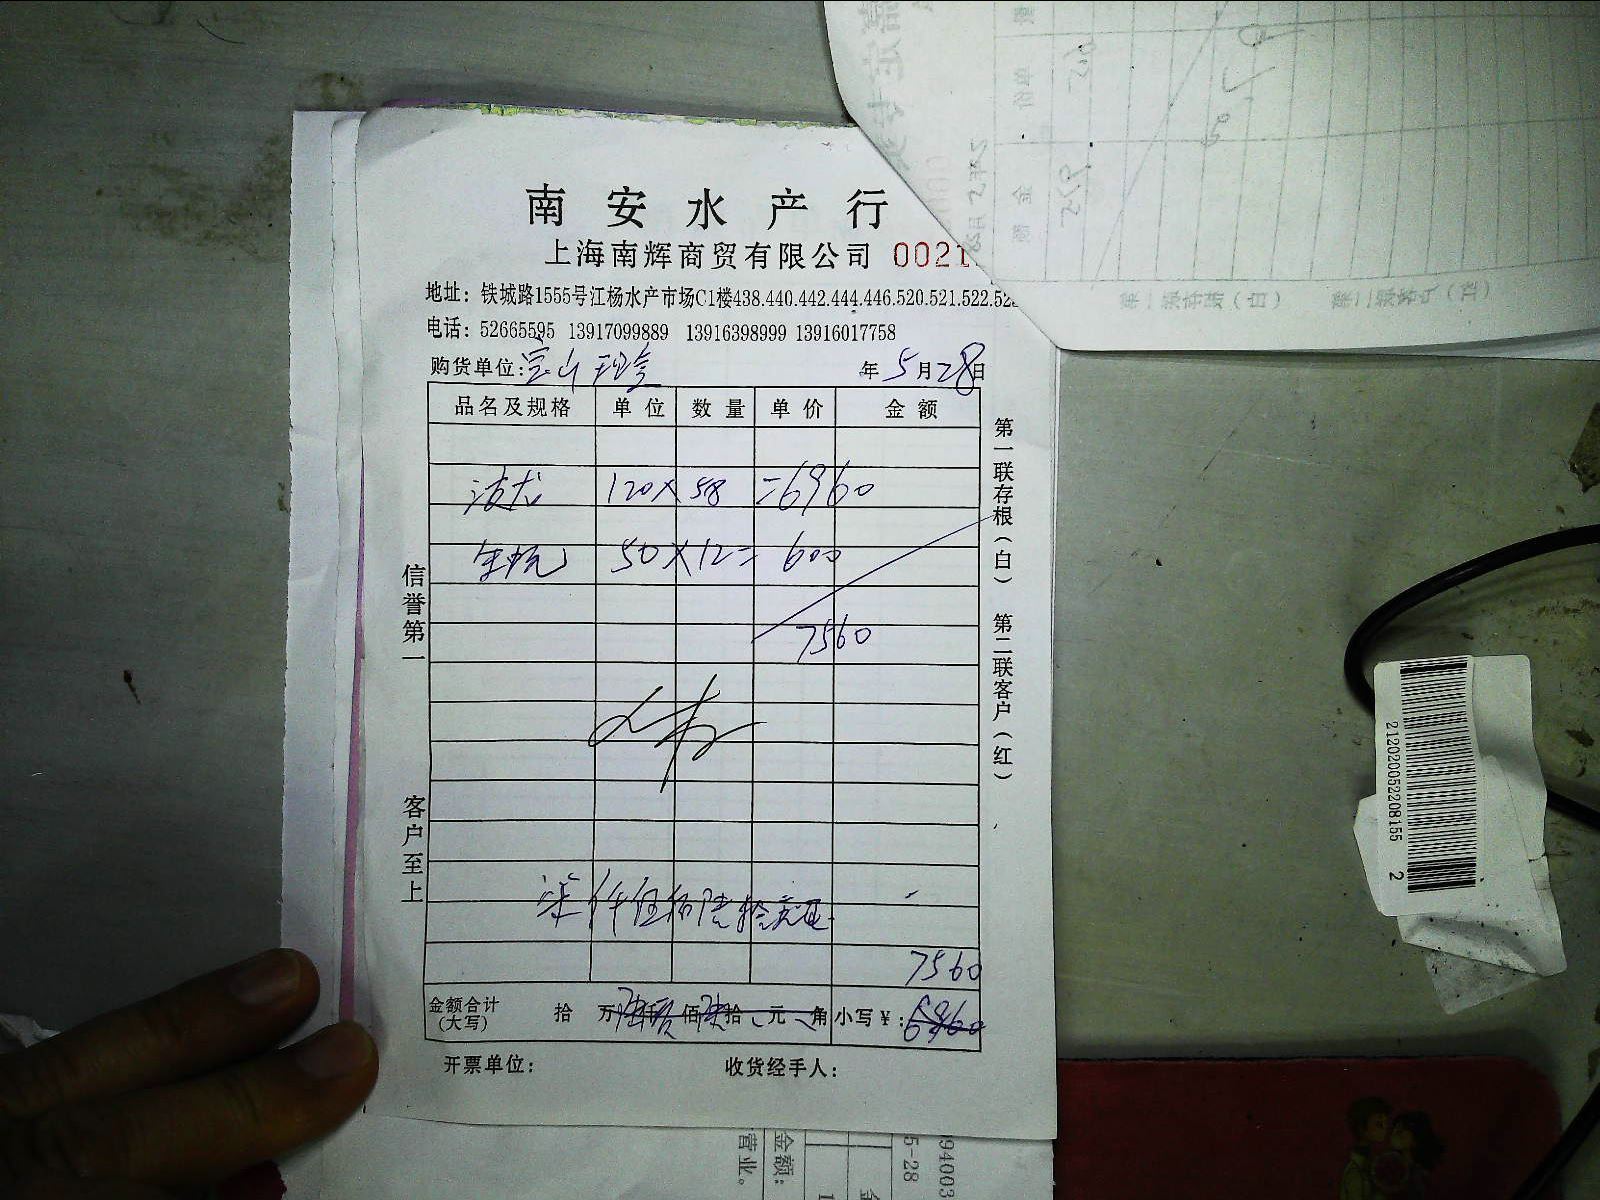 南安水产行
上海南辉商贸有限公司 0021
地址：铁城路1555号江杨水产市场C1楼438.440.442.444.446.520.521.522.52
电话：52665595 13917099889 13916398999 13916017758
购货单位：宝山 年5月28日
品名及规格 单位 数量 单价 金额
波龙 120×58=6960
50×12=600
7560
柒仟伍佰陆拾元正
7560
金额合计(大写) 拾 万 仟 佰 拾 元 角 小写￥：6960
开票单位： 收货经手人：
信誉第一 客户至上
第一联存根（白） 第二联客户（红）
212020052208155 2
5-28
94003
金额：
营业。